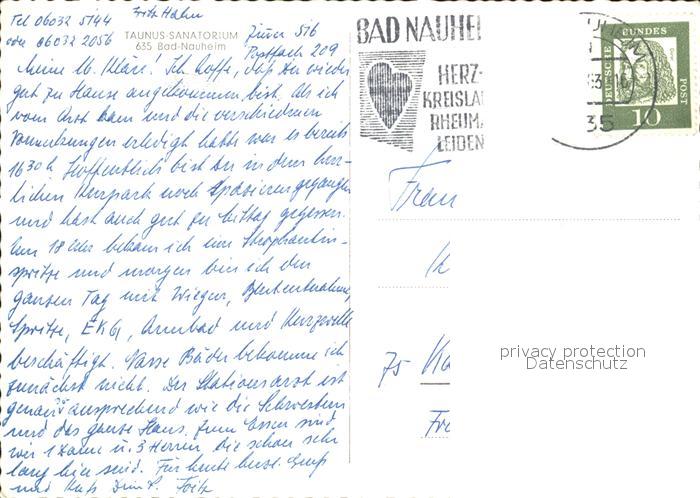 Tel 06032 5744 Fritz Hahn
oder 06032 2056
TAUNUS-SANATORIUM
635 Bad-Nauheim
Zimm 516
Postfach 209
Meine lb. Kläre! Ich hoffe, daß Du wieder
gut zu Hause angekommen bist. Als ich
vom Arzt kam und die verschiedenen
erledigt hatte war es bereits
1630 h. Hoffentlich bist Du in dem herr-
lichen Kurpark noch spazieren gegangen
und hast auch gut zu Mittag gegessen.
Um 18 Uhr bekam ich eine Strophantin-
spritze und morgen bin ich den
ganzen Tag mit Wiegen, Blutentnahme,
Spritze, EKG, Armbad und
beschäftigt. Nasse Bäder bekomme ich
zunächst nicht. Der Stationsarzt ist
genau so ansprechend wie die Schwestern
und das ganze Haus. Zum Essen sind
wir 1 Dame u. 3 Herren, die schon sehr
lang hier sind. Für heute herzl. Gruß
und Kuß Dein Fritz
BAD NAUHEI
HERZ-
KREISLA
RHEUM.
LEIDEN
35
DEUTSCHE BUNDES POST
10
Frau
75 Ka
Fr
privacy protection
Datenschutz